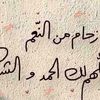 زحام من النّعم
اللهم لك الحمد و الشكر